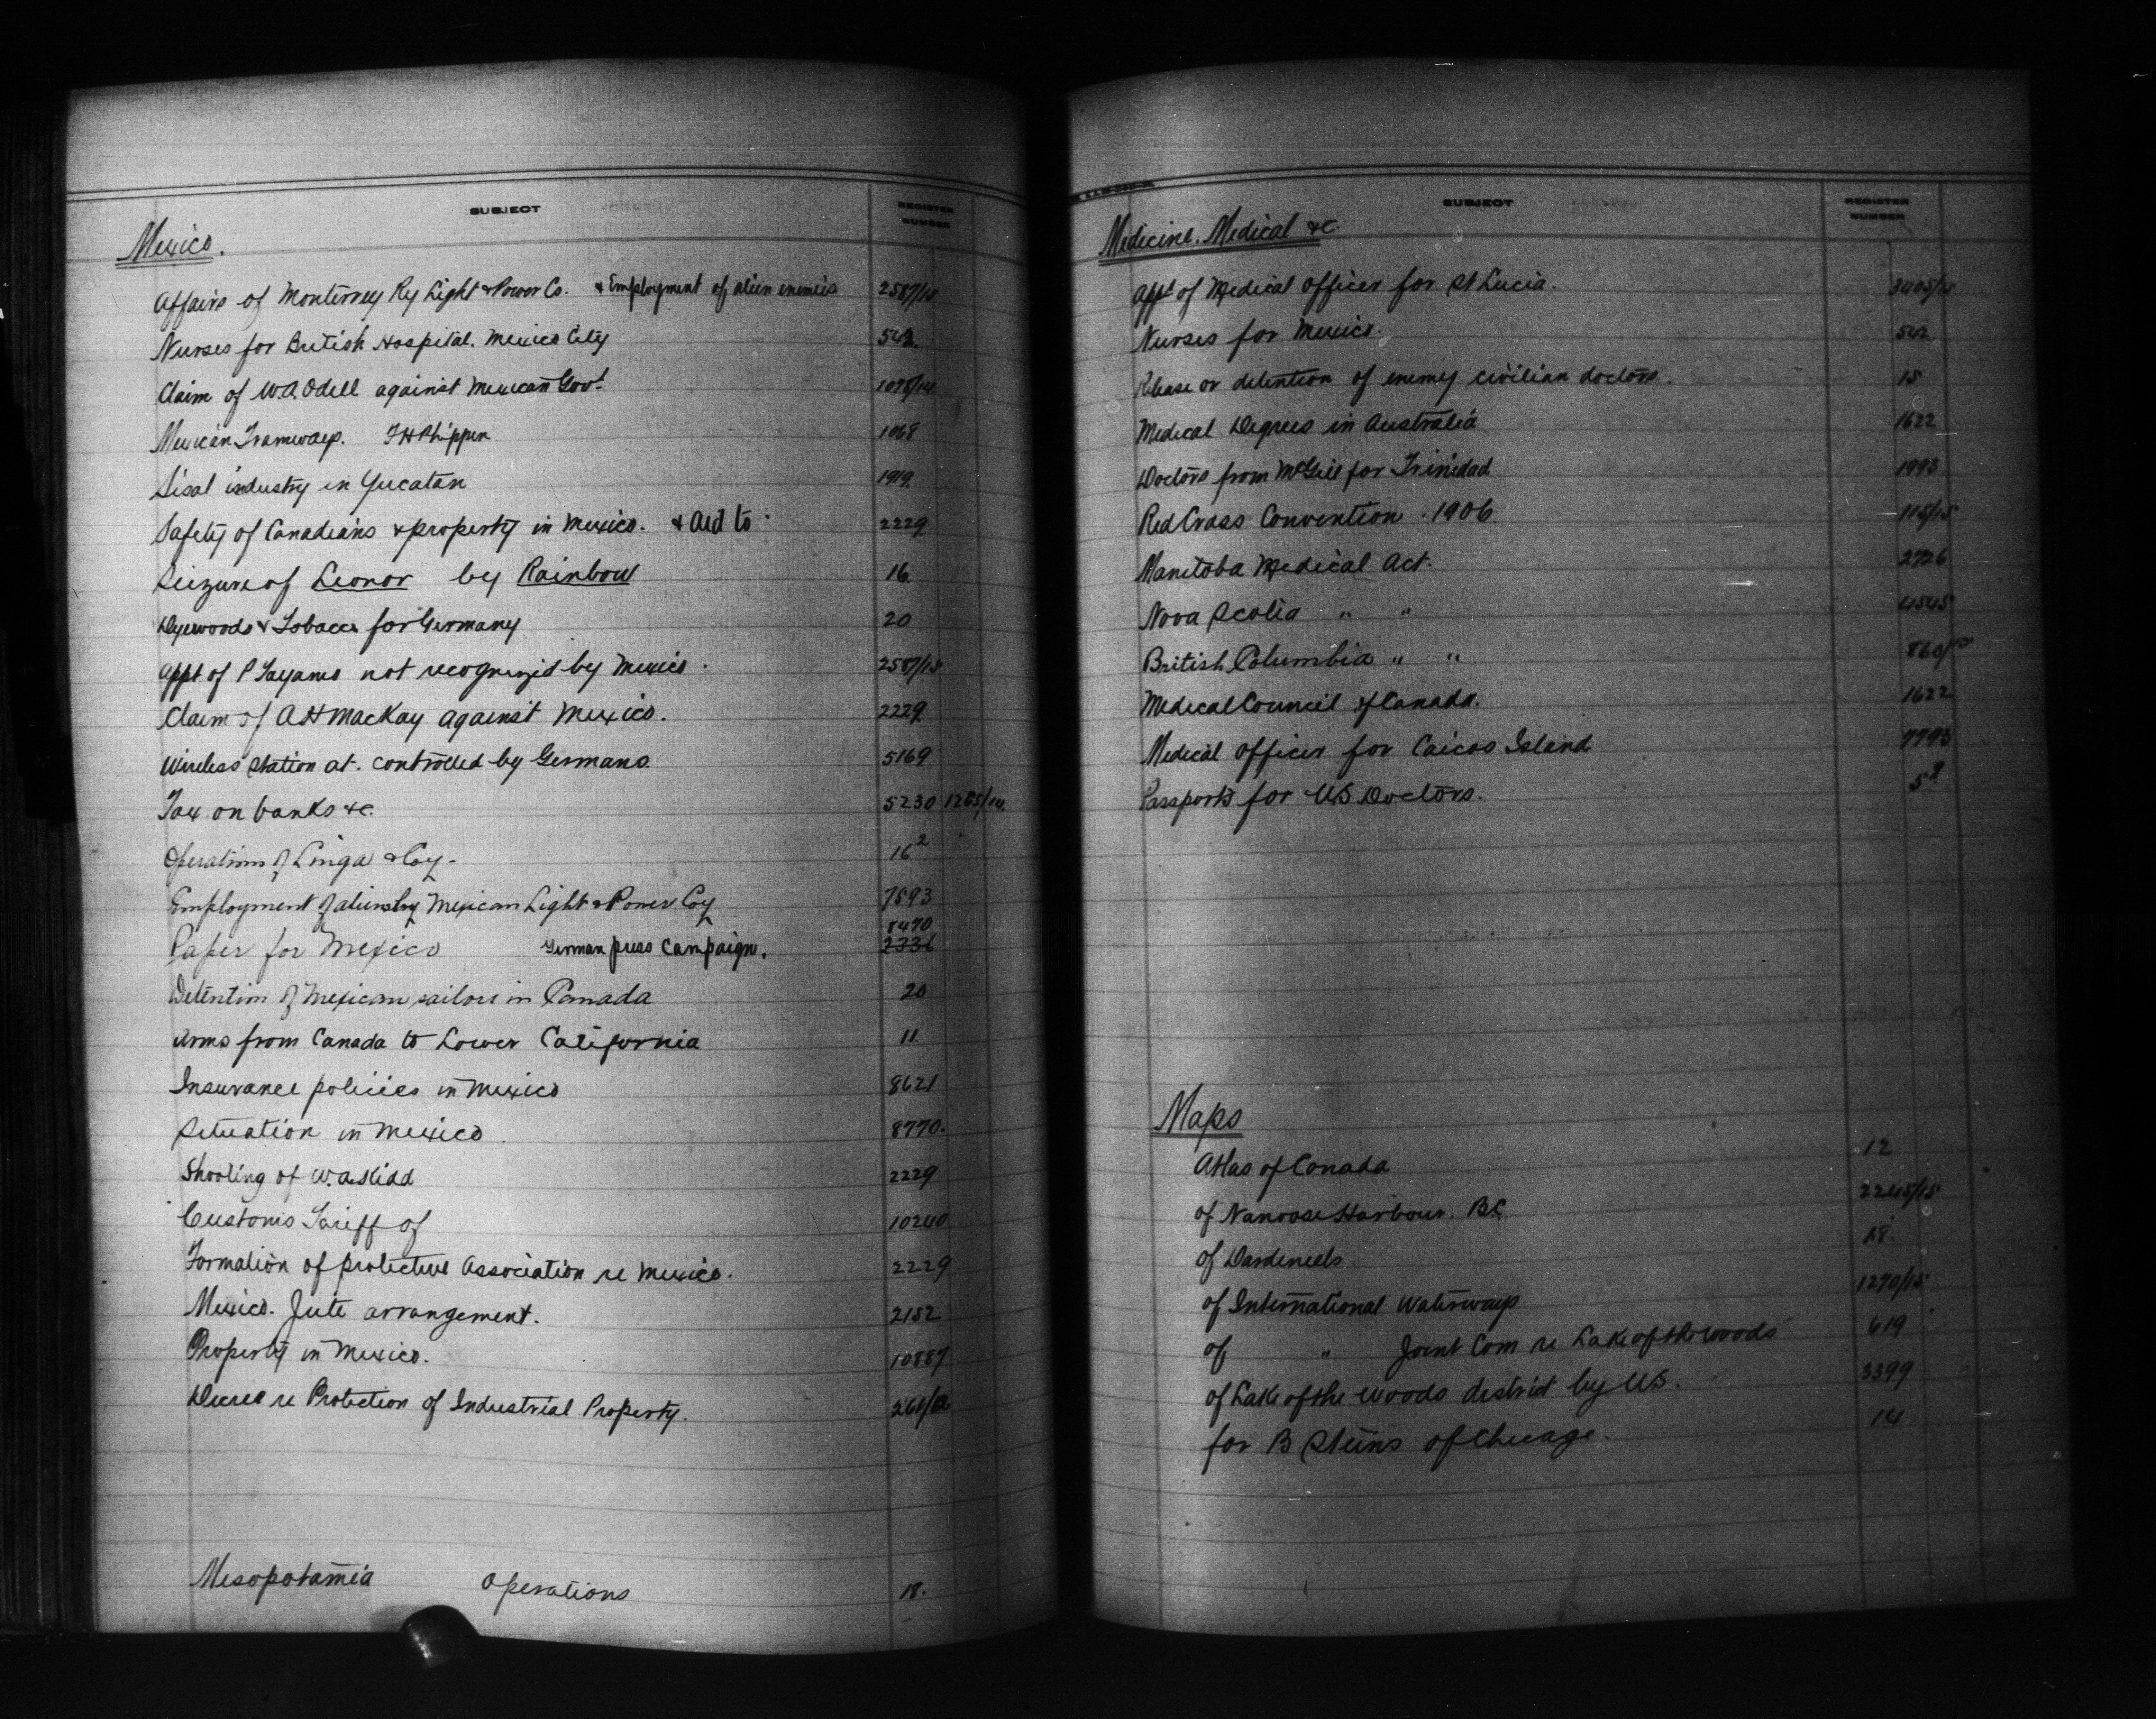 SUBJECT REGISTER NUMBER
Mexico.
Affairs of Monterrey Ry Light & Power Co. & Employment of alien enemies 2587/15
Nurses for British Hospital. Mexico City 542.
Claim of W.A. Odell against Mexican Govt. 1078/14
Mexican Tramways. F H Phippen 1068
Sisal industry in Yucatan 1919.
Safety of Canadians & property in Mexico. & Aid to 2229
Seizure of Leonor by Rainbow 16.
Dyewoods & Tobacco for Germany 20
Appt of P Tayano not recognized by Mexico. 2587/15
Claim of A H MacKay against Mexico. 2229
Wireless Station at. controlled by Germans. 5169
Tax on banks &c. 5230 1285/14.
Operations of Linga & Coy- 16²
Employment of aliens by Mexican Light & Power Coy 7593
Paper for Mexico German press campaign. 8470 2336
Detention of Mexican sailors in Canada 20
Arms from Canada to Lower California 11
Insurance policies in Mexico 8621
Situation in Mexico. 8770.
Shooting of W.A. Kidd 2229
Customs Tariff of 10240
Formation of protective Association re Mexico. 2229
Mexico. Jute arrangement. 2152
Property in Mexico. 10887
Decree re Protection of Industrial Property.
Mesopotamia Operations 18.
SUBJECT REGISTER NUMBER
Medicine. Medical &c.
Appt of Medical Officer for St Lucia. 3405/15
Nurses for Mexico. 542.
Release or detention of enemy civilian doctors. 15
Medical Degrees in Australia 1622
Doctors from McGill for Trinidad 1993
Red Cross Convention. 1906. 115/15
Manitoba Medical Act. 2726
Nova Scotia " " 4545
British Columbia " "
Medical Council of Canada. 1622
Medical Officer for Caicos Island 7793
Passports for US Doctors. 5⁹
Maps
Atlas of Canada 12
of Nanoose Harbour. B.C. 2245/15
of Dardeneels 18.
of International Waterways 1270/15
of " Joint Com re Lake of the Woods 619
of Lake of the Woods district by US. 3399
for B Steins of Chicago. 14